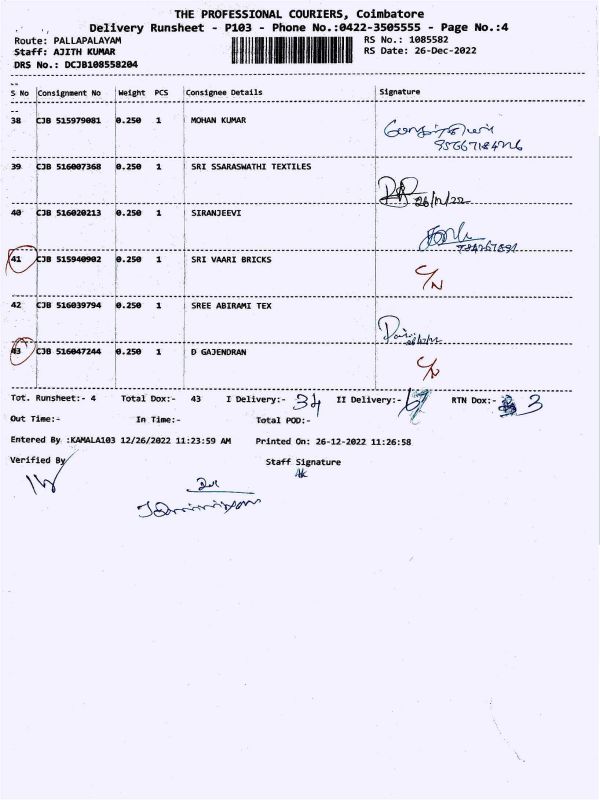 THE PROFESSIONAL COURIERS, Coimbatore
Delivery Runsheet - P103 - Phone No.:0422-3505555 - Page No.:4
Route: PALLAPALAYAM RS No.: 1085582
Staff: AJITH KUMAR RS Date: 26-Dec-2022
DRS No.: DCJB108558204
S No Consignment No Weight PCS Consignee Details Signature
38 CJB 515979081 0.250 1 MOHAN KUMAR
39 CJB 516007368 0.250 1 SRI SSARASWATHI TEXTILES
26/12/22
40 CJB 516020213 0.250 1 SIRANJEEVI
41 CJB 515940902 0.250 1 SRI VAARI BRICKS
C/N
42 CJB 516039794 0.250 1 SREE ABIRAMI TEX
43 CJB 516047244 0.250 1 D GAJENDRAN
C/N
Tot. Runsheet:- 4 Total Dox:- 43 I Delivery:- 34 II Delivery:- RTN Dox:- 3
Out Time:- In Time:- Total POD:-
Entered By :KAMALA103 12/26/2022 11:23:59 AM Printed On: 26-12-2022 11:26:58
Verified By Staff Signature